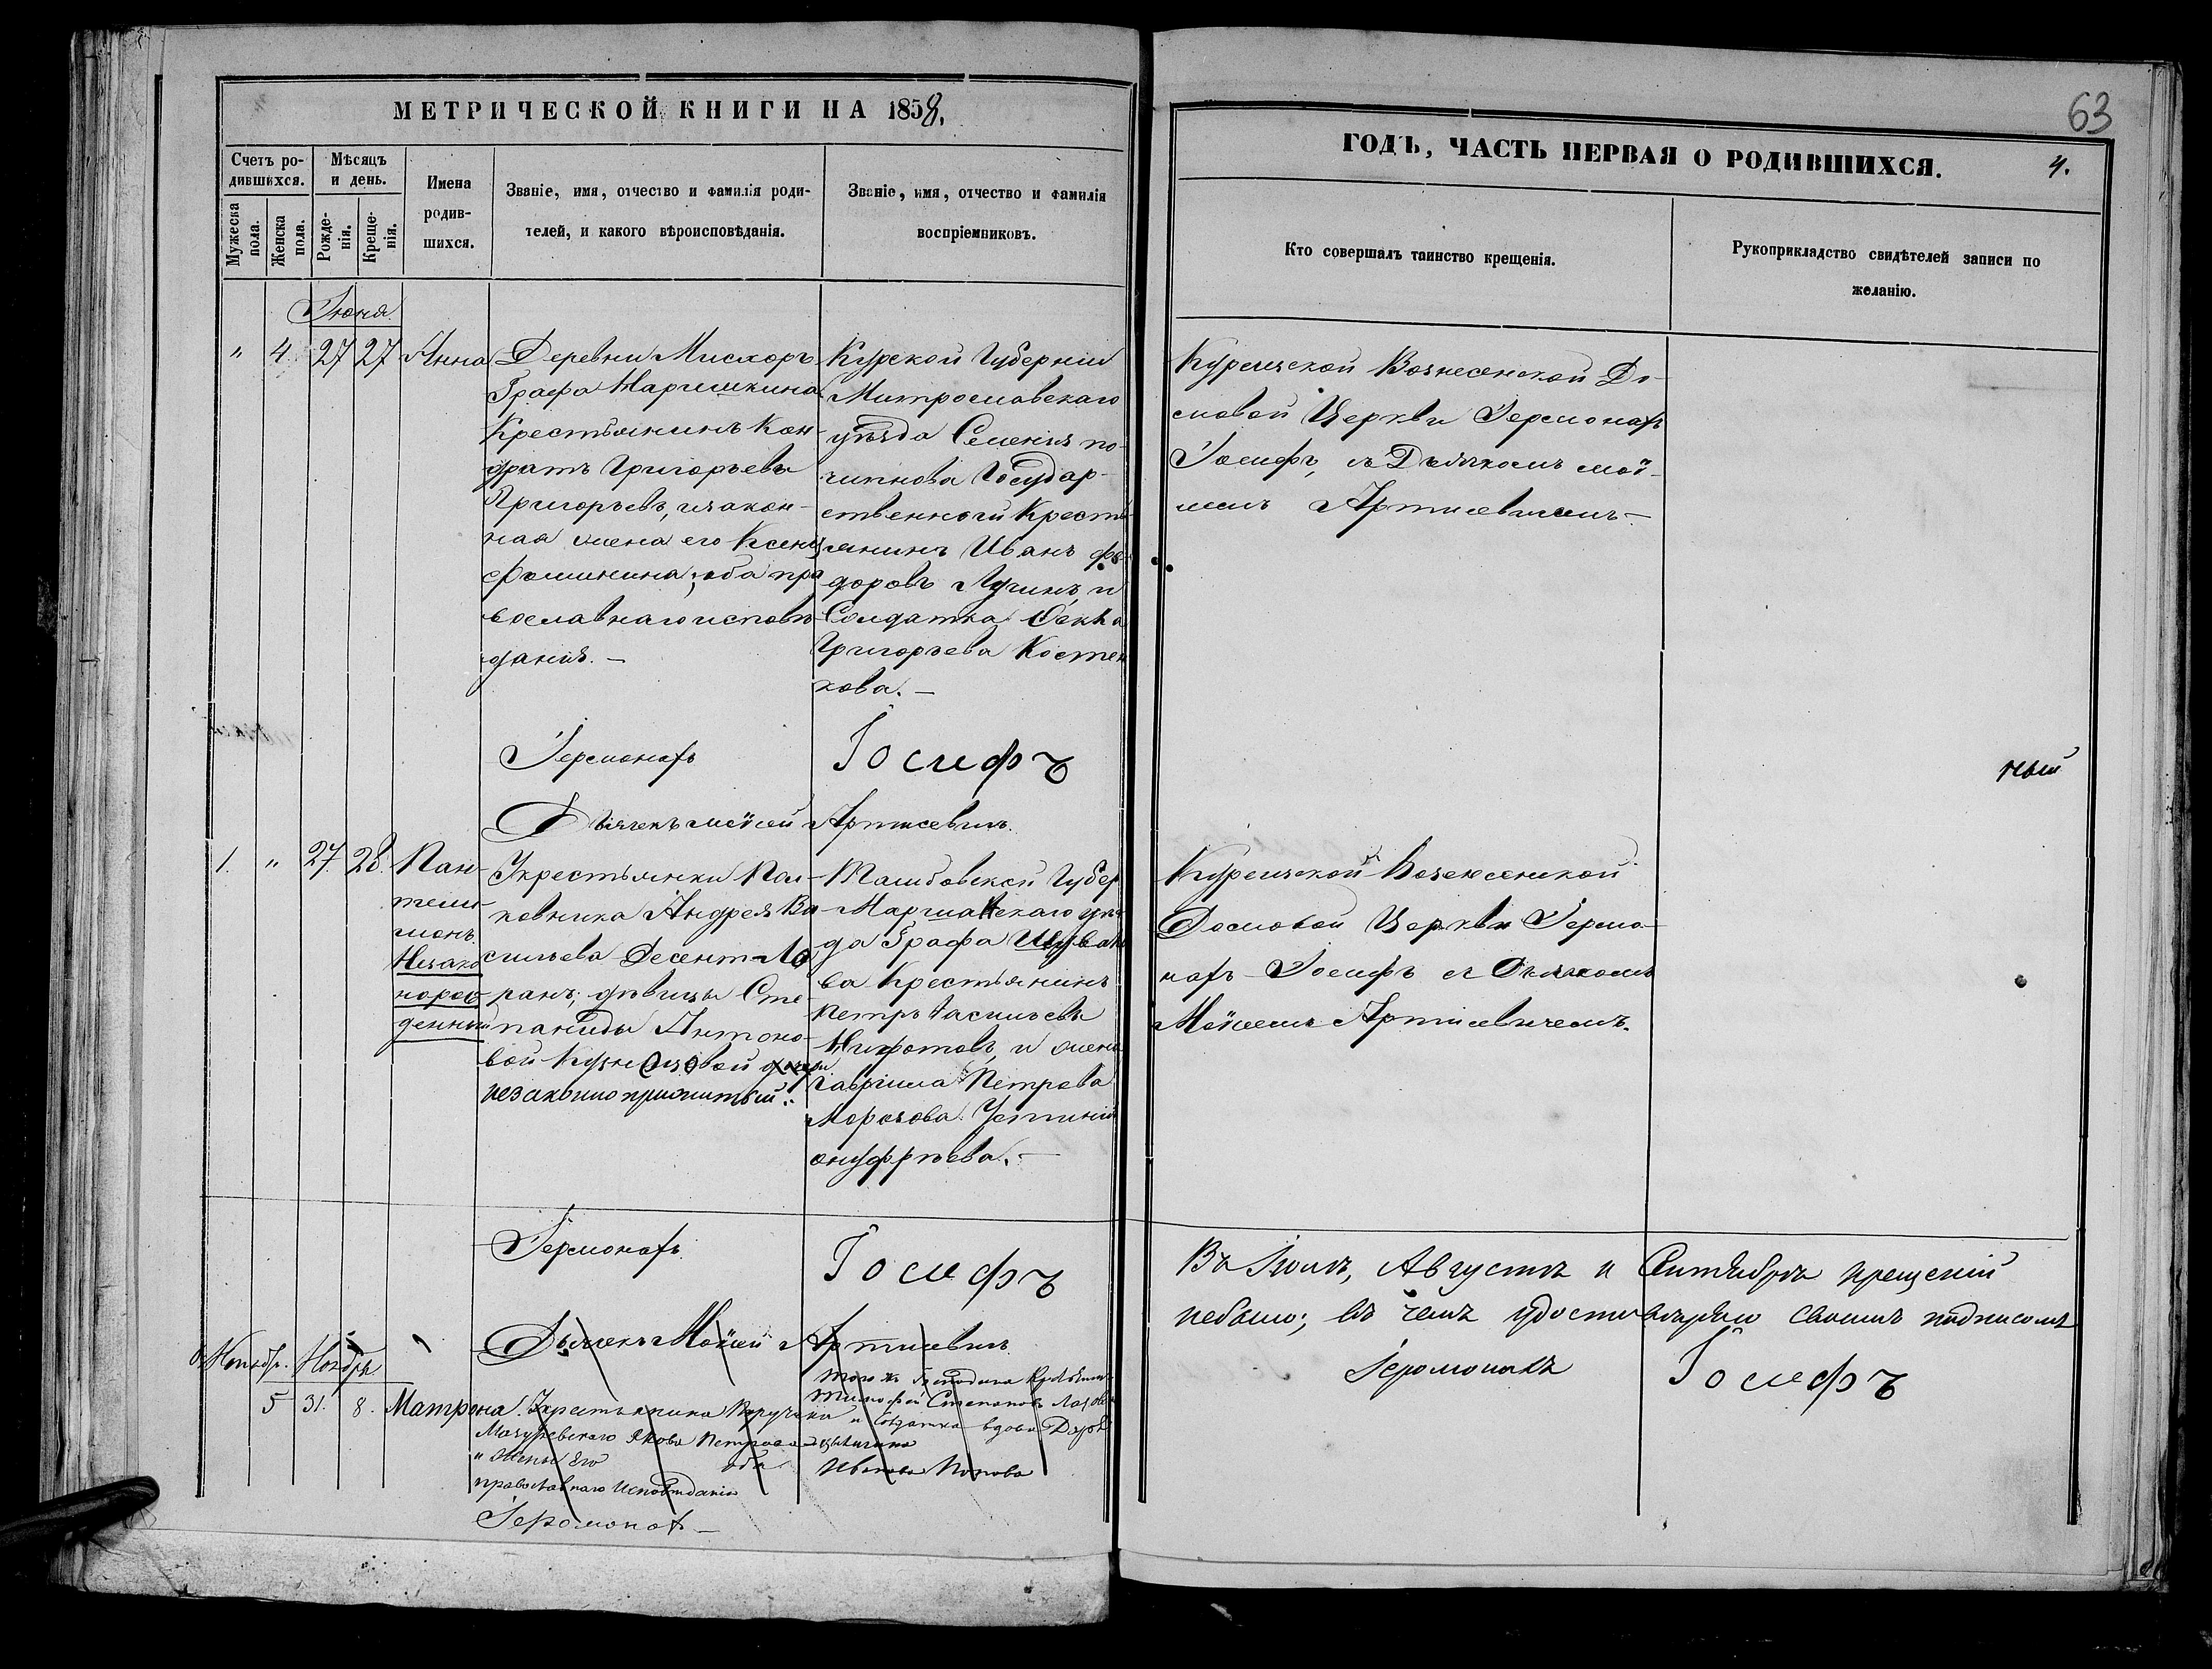 МЕТРИЧЕСКОЙ КНИГИ НА 1858,
Счетъ ро-
дившихся.
Мѣсяцъ
и день.
Мужеска
пола.
Женска
пола.
Рожде-
нія.
Креще-
нія.
Имена
родив-
шихся.
Званіе, имя, отчество и фамилія роди-
телей, и какого вѣроисповѣданія.
Званіе, имя, отчество и фамилія
воспріемниковъ.
Іюня
" 4. 27 27 Анна
Деревни Мисхоръ
Графа Нарышкина
Крестьянинъ Кон-
дратъ Григорьевъ
Григорьевъ, и закон-
ная жена его Ксенія
Фоминина; оба пра
вославнаго исповѣ
данія. —
Курской Губерніи
уѣзда Селенія по-
чинкова Государ-
ственной Кресть-
янинъ Иванъ Фе-
доровъ Лучинъ, и
Солдатка Фекла
Григорьева Костен
кова. —
Іеромонахъ Іосифъ
Дьячекъ Моисей Артисевичъ.
1. " 27. 28.
Пан-
телей-
монъ.
Незако
норож-
денный
У крестьянки Пол-
ковника Андрея Ва-
сильева Десент-Ло
ранъ, дѣвицы Сте-
паниды Антоно-
вой Кузнецовой
незаконно прижитый.
Тамбовской Губер
Моршанскаго уѣз
да Графа Шувало
ва Крестьянинъ
Петръ Васильевъ
Никотовъ, и жена
Гаврила Петрова
Морозова Устинія
онуфріева. —
Іеромонахъ Іосифъ
Дьячекъ Моисей Артисевичъ
Ноябр. Ноябрь
5 31. 8. Матрона.
У крестьянина Поручика
Мазуревскаго Якова Петрова
и Жены Его оба
православнаго Исповѣданія
Тогоже Господина Крестьянинъ
Тимофей Степановъ
и Солдатка вдова Дарья
Иванова Попова
Іеромонахъ —
63
ГОДЪ, ЧАСТЬ ПЕРВАЯ О РОДИВШИХСЯ.
4.
Кто совершалъ таинство крещенія.
Рукоприкладство свидѣтелей записи по
желанію.
Курсизской Вознесенской До-
мовой Церкви Іеромонахъ
Іосифъ, съ Дьячкомъ Мои-
сеемъ Артисевичемъ. —
ный
Курсизской Вознесенской
Домовой Церкви Іеромо-
нахъ Іосифъ съ Дьячкомъ
Моисеемъ Артисевичемъ.
Въ Іюлѣ, Августѣ и Сентябрѣ крещеній
небыло; въ чемъ удостовѣряю своимъ подписомъ
Іеромонахъ Іосифъ